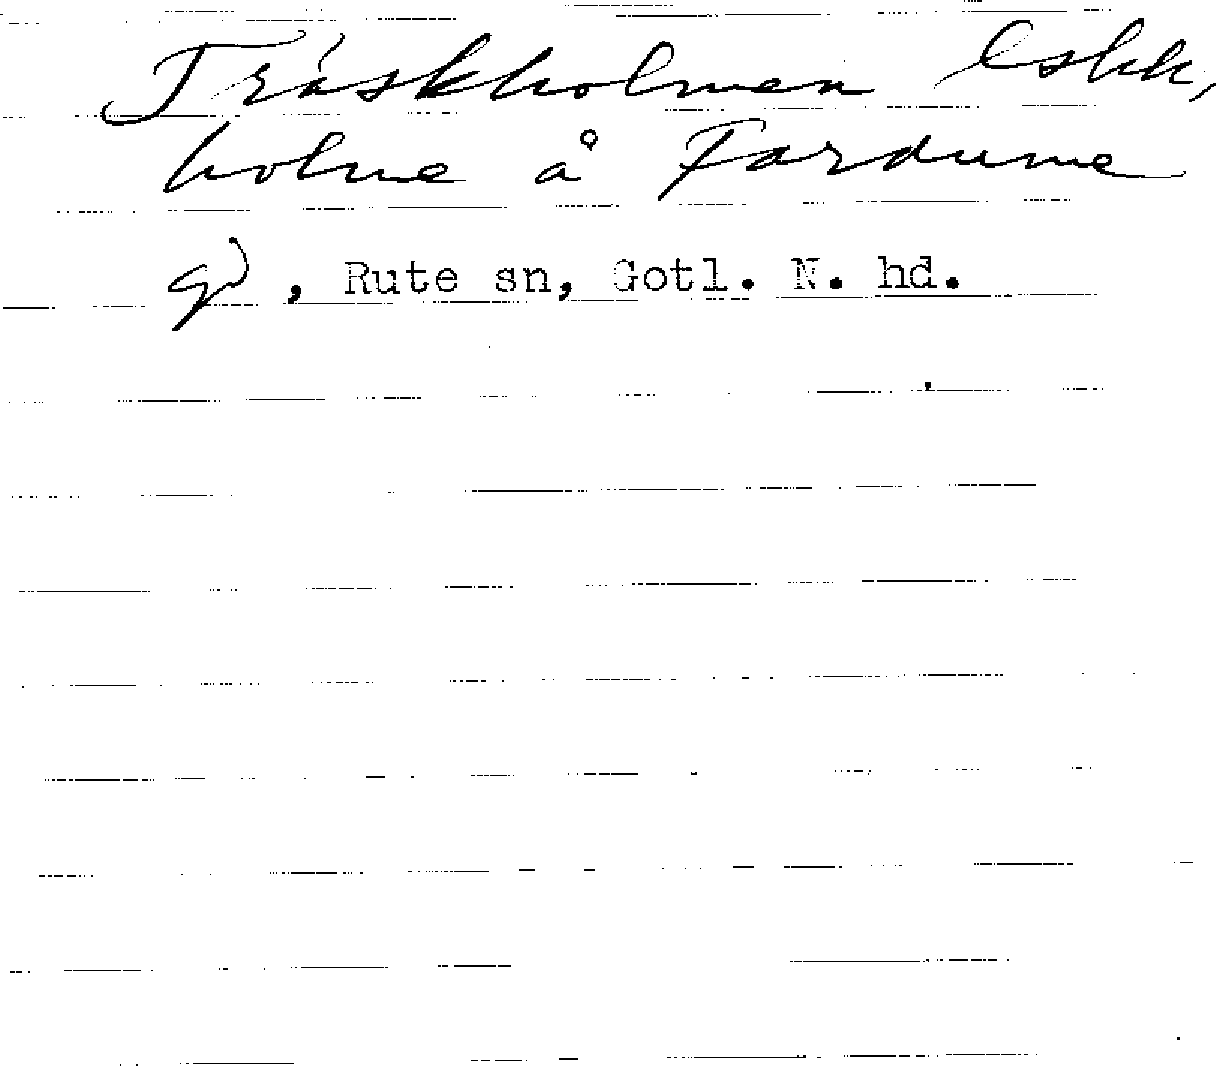 Träskholmen Eskk,
holme å Fardume
gd, Rute sn, Gotl. N. hd.